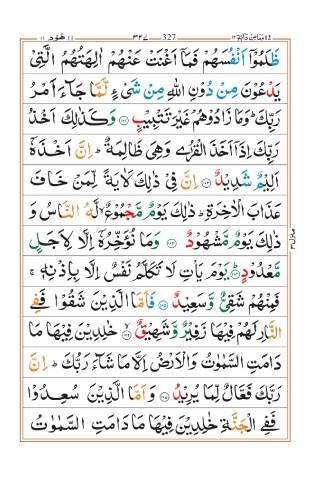 وما من دآبة ١٢ ٣٢٧ 327 هود ١١
ظَلَمُوْۤا اَنْفُسَهُمْ فَمَاۤ اَغْنَتْ عَنْهُمْ اٰلِهَتُهُمُ الَّتِیْ
یَدْعُوْنَ مِنْ دُوْنِ اللّٰهِ مِنْ شَیْءٍ لَّمَّا جَآءَ اَمْرُ
رَبِّكَ ؕ وَمَا زَادُوْهُمْ غَیْرَ تَتْبِیْبٍ ﴿۱۰۱﴾ وَكَذٰلِكَ اَخْذُ
رَبِّكَ اِذَاۤ اَخَذَ الْقُرٰی وَهِیَ ظَالِمَةٌ ؕ اِنَّ اَخْذَهٗۤ
اَلِیْمٌ شَدِیْدٌ ﴿۱۰۲﴾ اِنَّ فِیْ ذٰلِكَ لَاٰیَةً لِّمَنْ خَافَ
عَذَابَ الْاٰخِرَةِ ؕ ذٰلِكَ یَوْمٌ مَّجْمُوْعٌ ۙ لَّهُ النَّاسُ وَ
ذٰلِكَ یَوْمٌ مَّشْهُوْدٌ ﴿۱۰۳﴾ وَمَا نُؤَخِّرُهٗۤ اِلَّا لِاَجَلٍ
مَّعْدُوْدٍ ﴿۱۰۴﴾ یَوْمَ یَاْتِ لَا تَكَلَّمُ نَفْسٌ اِلَّا بِاِذْنِهٖ ۚ
فَمِنْهُمْ شَقِیٌّ وَّسَعِیْدٌ ﴿۱۰۵﴾ فَاَمَّا الَّذِیْنَ شَقُوْا فَفِی
النَّارِ لَهُمْ فِیْهَا زَفِیْرٌ وَّشَهِیْقٌ ﴿۱۰۶﴾ خٰلِدِیْنَ فِیْهَا مَا
دَامَتِ السَّمٰوٰتُ وَالْاَرْضُ اِلَّا مَا شَآءَ رَبُّكَ ؕ اِنَّ
رَبَّكَ فَعَّالٌ لِّمَا یُرِیْدُ ﴿۱۰۷﴾ وَاَمَّا الَّذِیْنَ سُعِدُوْا
فَفِی الْجَنَّةِ خٰلِدِیْنَ فِیْهَا مَا دَامَتِ السَّمٰوٰتُ
منزل ٣